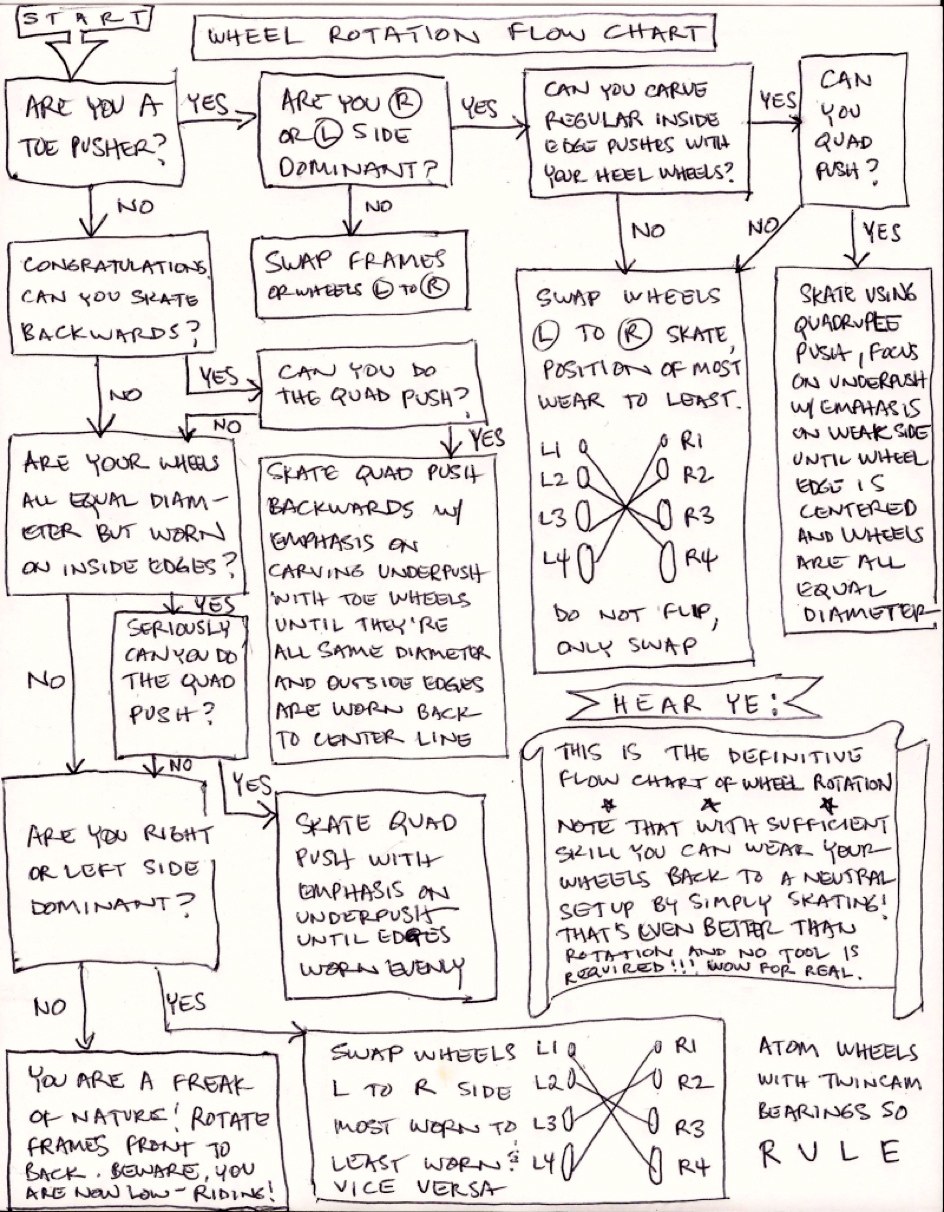 START
WHEEL ROTATION FLOW CHART
ARE YOU A
TOE PUSHER?
YES
ARE YOU Ⓡ
OR Ⓛ SIDE
DOMINANT?
YES
CAN YOU CARVE
REGULAR INSIDE
EDGE PUSHES WITH
YOUR HEEL WHEELS?
YES
CAN
YOU
QUAD
PUSH?
NO
NO
NO
NO
YES
CONGRATULATIONS.
CAN YOU SKATE
BACKWARDS?
SWAP FRAMES
OR WHEELS Ⓛ TO Ⓡ
SWAP WHEELS
Ⓛ TO Ⓡ SKATE,
POSITION OF MOST
WEAR TO LEAST.
L1 R1
L2 R2
L3 R3
L4 R4
DO NOT FLIP,
ONLY SWAP
SKATE USING
QUADRUPEE
PUSH, FOCUS
ON UNDERPUSH
W/ EMPHASIS
ON WEAK SIDE
UNTIL WHEEL
EDGE IS
CENTERED
AND WHEELS
ARE ALL
EQUAL
DIAMETER
NO
YES
CAN YOU DO
THE QUAD PUSH?
NO
YES
ARE YOUR WHEELS
ALL EQUAL DIAM-
ETER BUT WORN
ON INSIDE EDGES?
SKATE QUAD PUSH
BACKWARDS W/
EMPHASIS ON
CARVING UNDERPUSH
WITH TOE WHEELS
UNTIL THEY'RE
ALL SAME DIAMETER
AND OUTSIDE EDGES
ARE WORN BACK
TO CENTER LINE
NO
YES
SERIOUSLY
CAN YOU DO
THE QUAD
PUSH?
NO
YES
HEAR YE:
THIS IS THE DEFINITIVE
FLOW CHART OF WHEEL ROTATION
NOTE THAT WITH SUFFICIENT
SKILL YOU CAN WEAR YOUR
WHEELS BACK TO A NEUTRAL
SETUP BY SIMPLY SKATING!
THAT'S EVEN BETTER THAN
ROTATION AND NO TOOL IS
REQUIRED!!! WOW FOR REAL.
ARE YOU RIGHT
OR LEFT SIDE
DOMINANT?
SKATE QUAD
PUSH WITH
EMPHASIS ON
UNDERPUSH
UNTIL EDGES
WORN EVENLY
NO
YES
YOU ARE A FREAK
OF NATURE! ROTATE
FRAMES FRONT TO
BACK. BEWARE, YOU
ARE NOW LOW-RIDING!
SWAP WHEELS
L TO R SIDE
MOST WORN TO
LEAST WORN &
VICE VERSA
L1 R1
L2 R2
L3 R3
L4 R4
ATOM WHEELS
WITH TWINCAM
BEARINGS SO
RULE